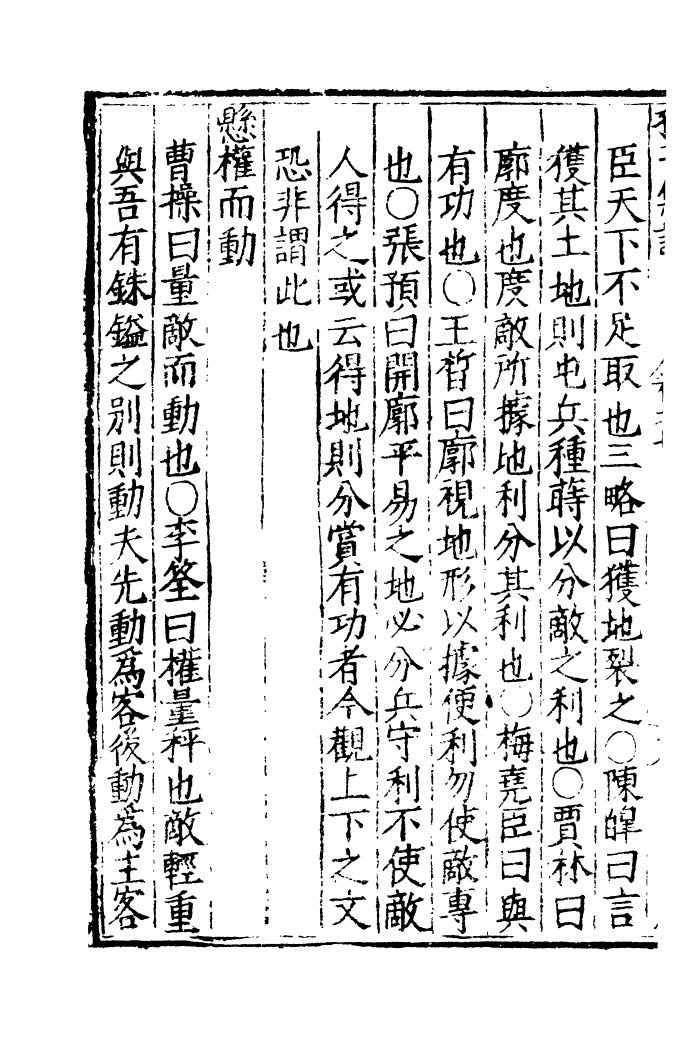 臣天下不足取也三略曰獲地裂之○陳皥曰言
獲其土地則屯兵種蒔以分敵之利也○賈林曰
廓度也度敵所據地利分其利也○梅堯臣曰與
有功也○王晳曰廓視地形以據便利勿使敵專
也○張預曰開廓平易之地必分兵守利不使敵
人得之或云得地則分賞有功者今觀上下之文
恐非謂此也
懸權而動
曹操曰量敵而動也○李筌曰權量秤也敵輕重
與吾有銖鎰之别則動夫先動爲客後動爲主客